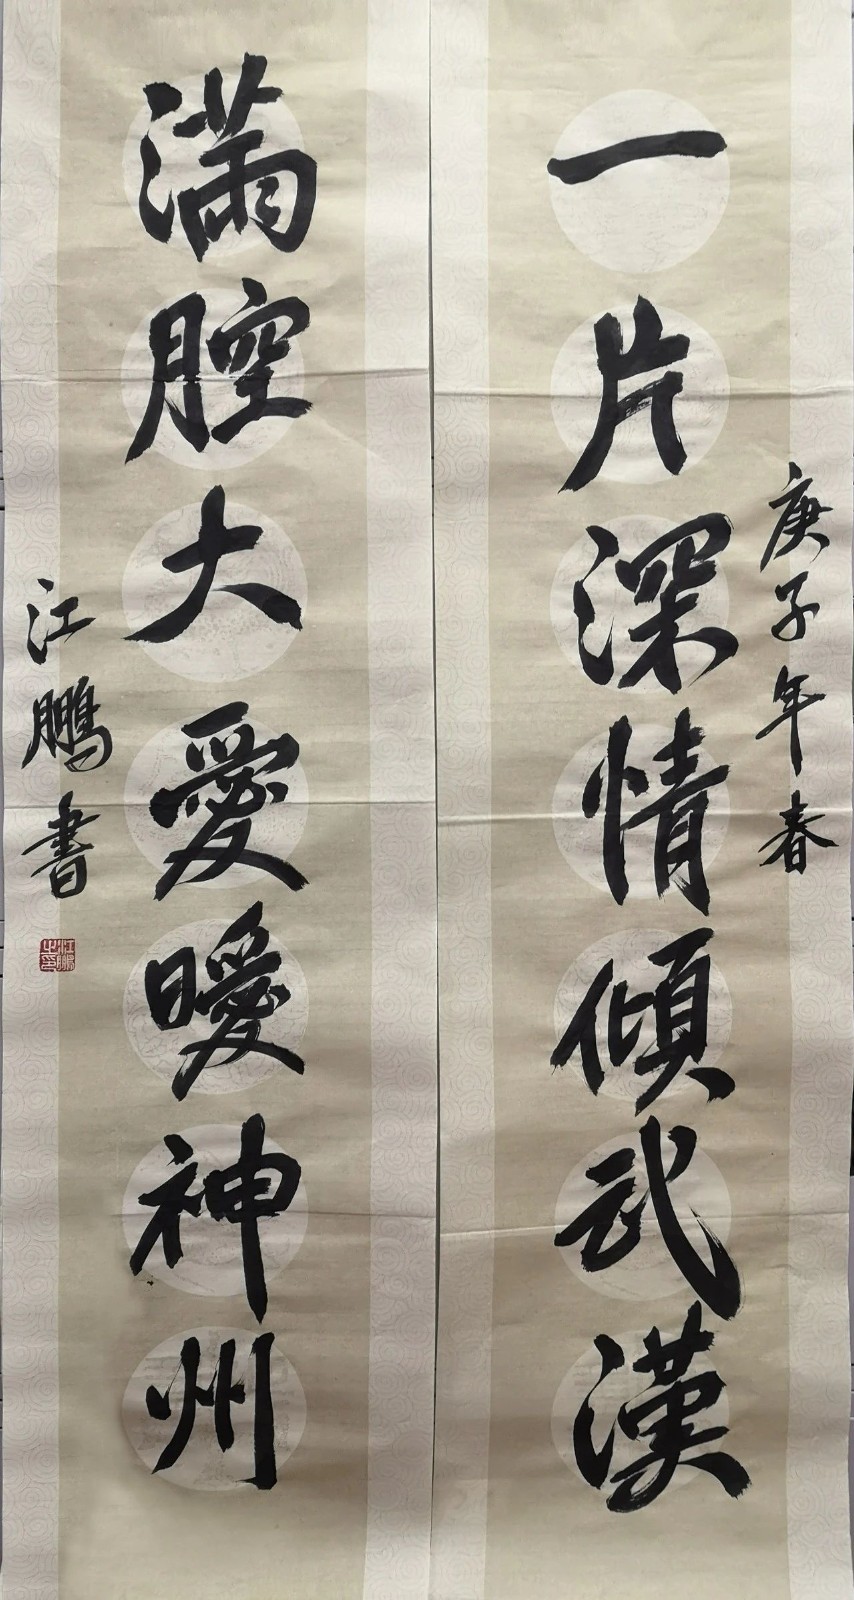 庚子年春
一片深情傾武漢
满腔大愛暖神州
江鵬書
江鵬之印